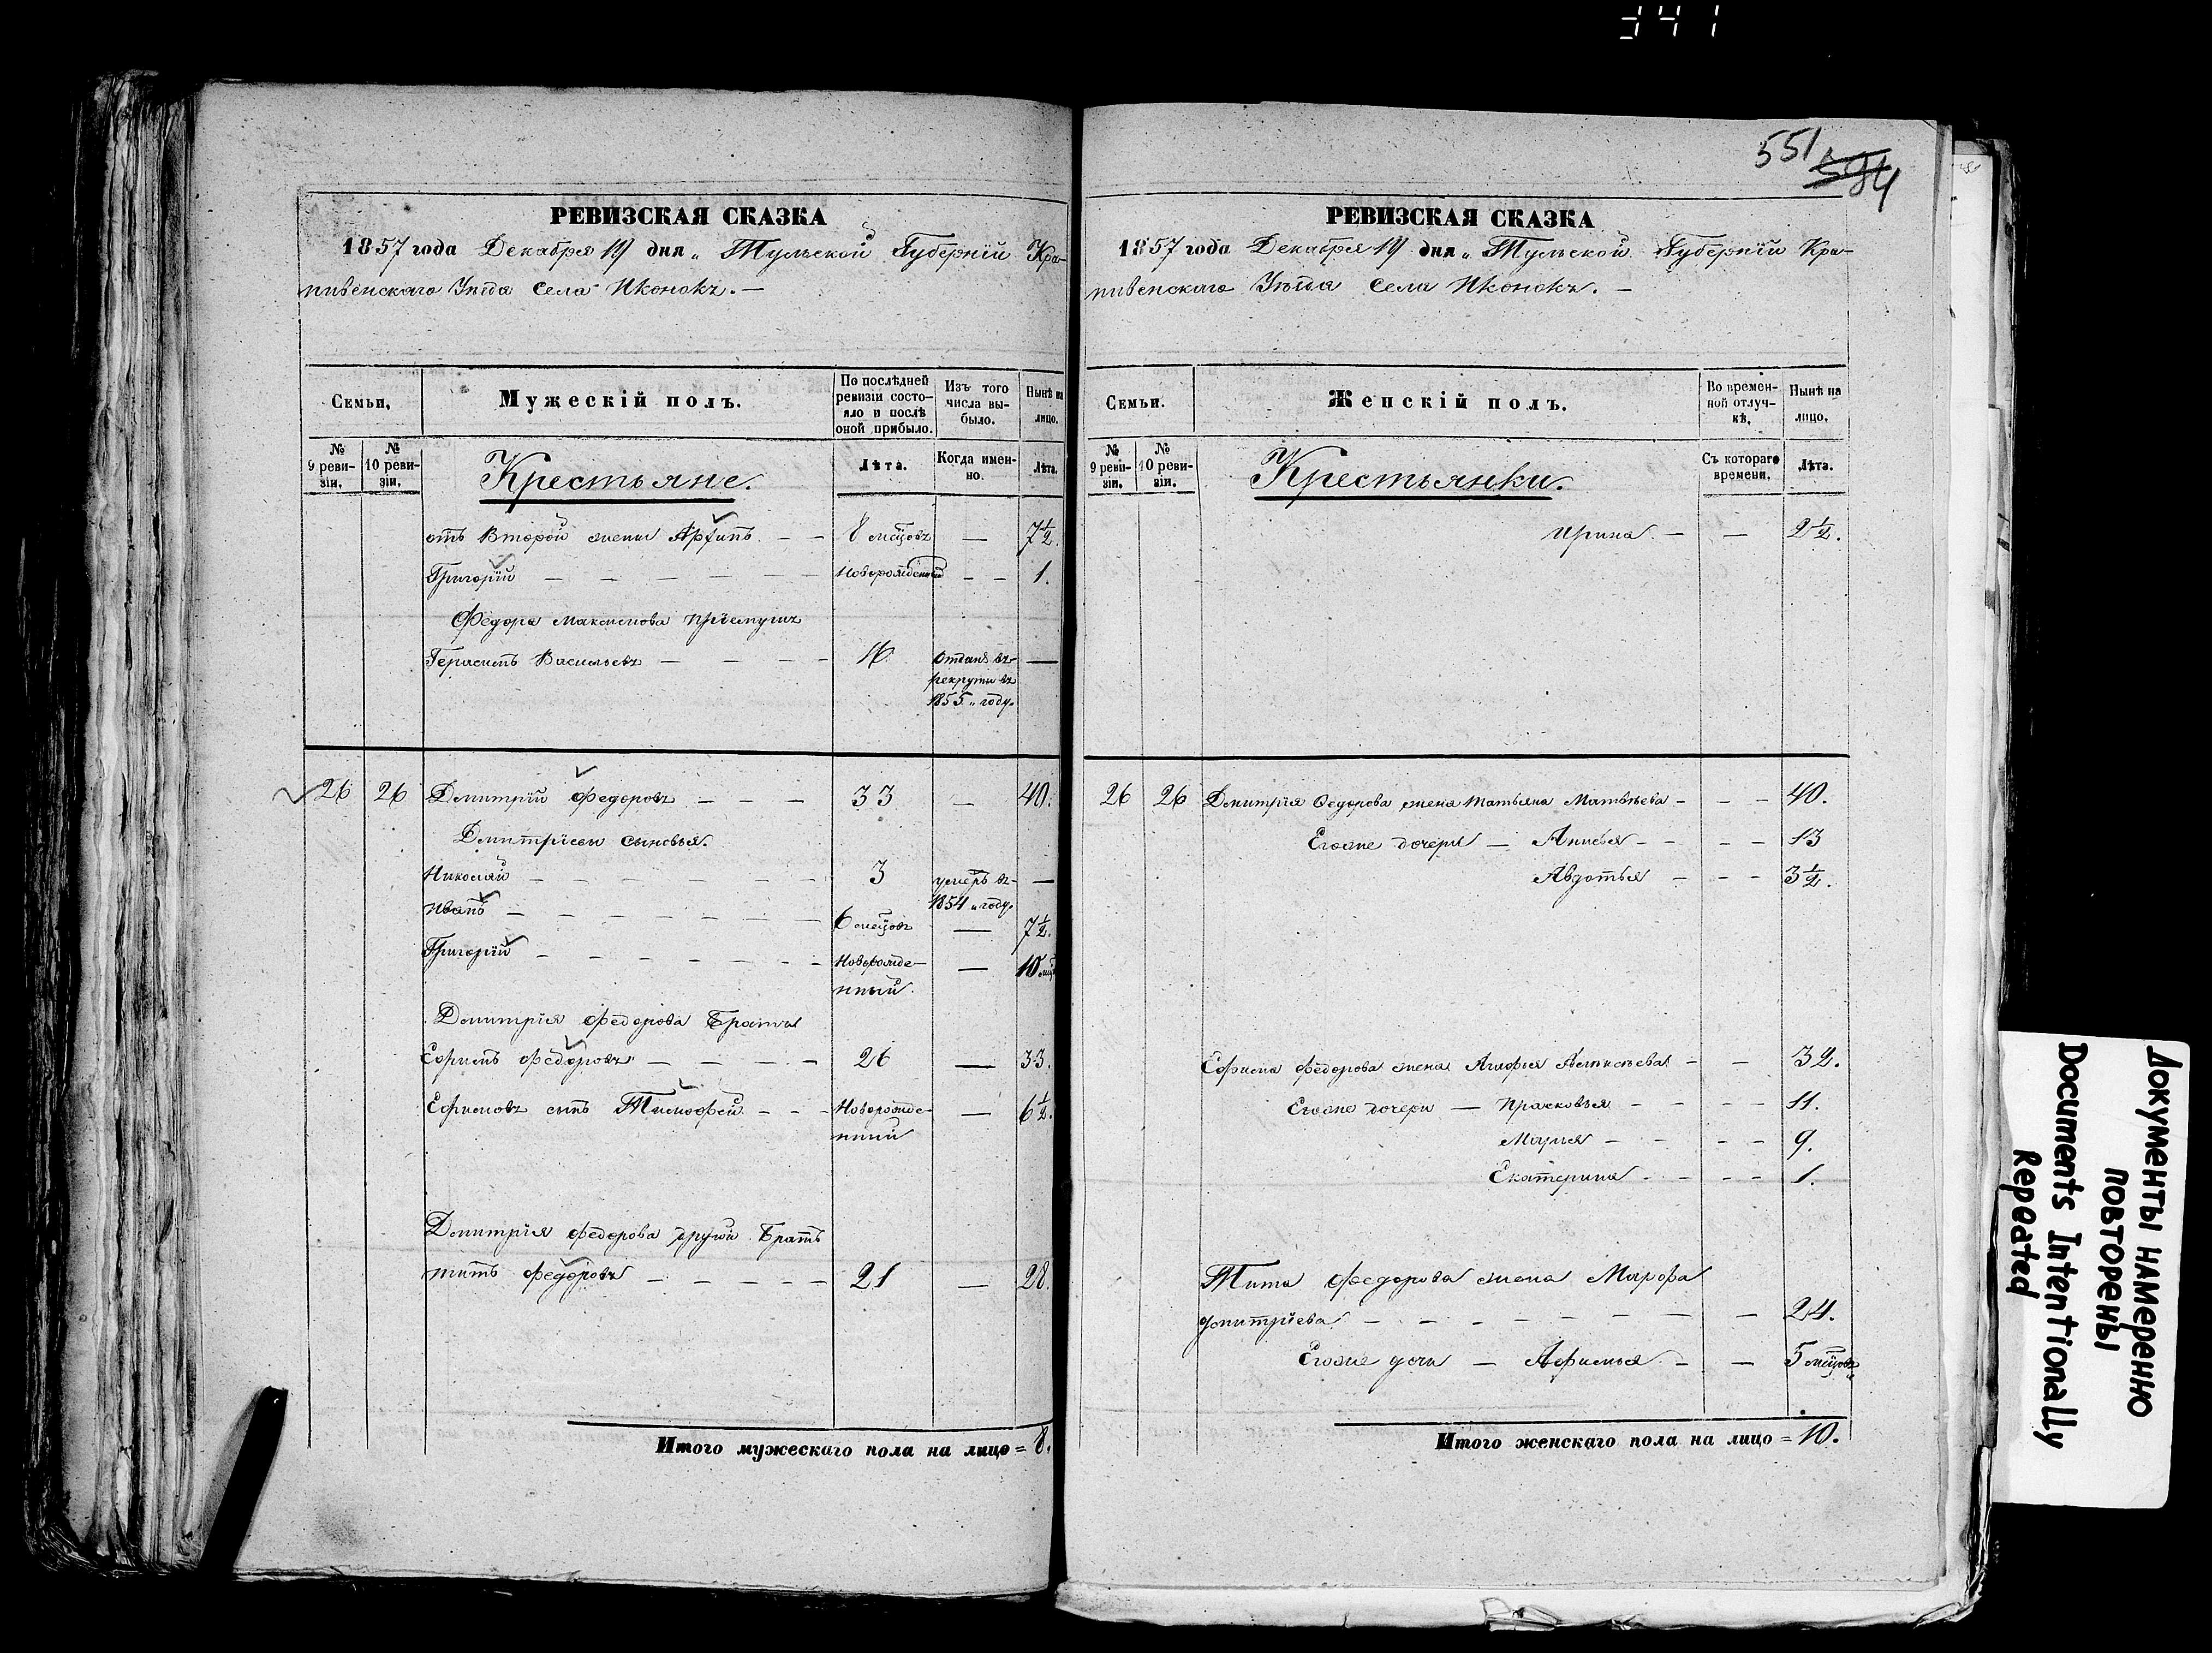 341
551
594
РЕВИЗСКАЯ СКАЗКА
1857 года Декабря 19 дня „ Тульской Губерніи Кра-
пивенскаго Уѣзда Села Иконокъ. —
Семьи,
Мужескій полъ.
По послѣдней ревизіи состо-
яло и послѣ оной прибыло.
Изъ того числа вы-
было.
Нынѣ на лицо.
№ 9 реви-
зіи.
№ 10 реви-
зіи.
Крестьяне.
Лѣта.
Когда имен-
но.
Лѣта.
отъ Второй жены Архипъ — — 8 мѣсцовъ — 7½.
Григорій — — — — — — Новорожденный — — 1.
Федора Максимова Пріемушъ
Герасимъ Васильевъ — — — — 16 Отданъ въ —
рекруты въ
1855 „ году.
26 26 Дмитрій Федоровъ — — — 33 — 40.
Дмитріевы сыновья.
Николай — — — — — — 3 умеръ въ —
1854 „ году.
Иванъ — — — — — — 6 мѣсцовъ — 7½.
Григорій — — — — — — Новорожде- — 10 мѣс
нный.
Дмитрія Федорова Братья
Ефимъ Федоровъ — — — — 26 — 33.
Ефимовъ сынъ Тимофей — — — Новорожде- — 6½.
нный
Дмитрія Федорова другой Братъ
Титъ Федоровъ — — — — — 21 — 28.
Итого мужескаго пола на лицо = 8.
РЕВИЗСКАЯ СКАЗКА
1857 года Декабря 19 дня „ Тульской Губерніи Кра-
пивенскаго Уѣзда Села Иконокъ. —
Семьи.
Женскій полъ.
Во времен-
ной отлуч-
кѣ,
Нынѣ на лицо.
№ 9 реви-
зіи.
№ 10 реви-
зіи.
Крестьянки.
Съ котораго времени.
Лѣта.
Ирина — — 2½.
26 26 Дмитрія Федорова жена Татьяна Матвѣева — — — 40.
Егоже дочери — Анисья — — — — 13
Авдотья — — — 3½.
Ефима Федорова жена Агафья Алексѣева — — 32.
Егоже дочери — Прасковья — — — — 11.
Марья — — — — 9.
Екатерина — — — — 1.
Тита Федорова жена Марфа
Дмитріева — — — — — — — — 24.
Егоже дочь — Афимья — — 5 мѣсцовъ
Итого женскаго пола на лицо = 10.
Документы намеренно
повторены
Documents Intentionally
Repeated